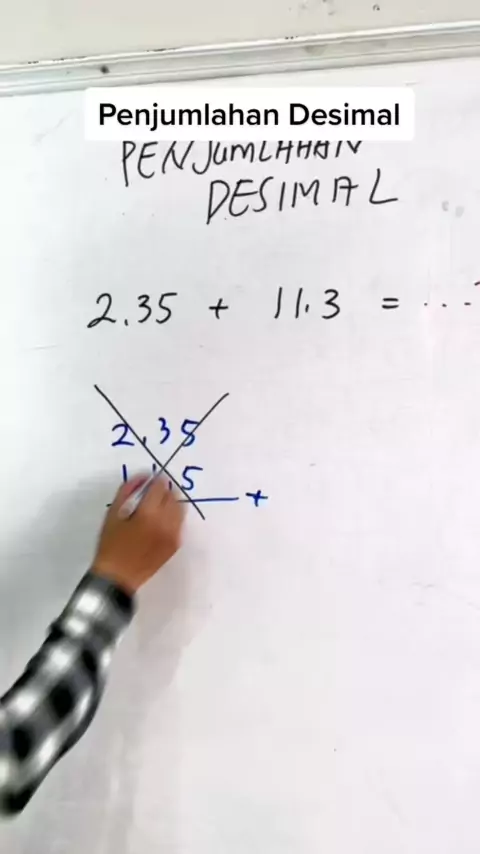 Penjumlahan Desimal
PENJUMLAHAN
DESIMAL
2.35 + 11.3 = ...
2,35
11,5 +